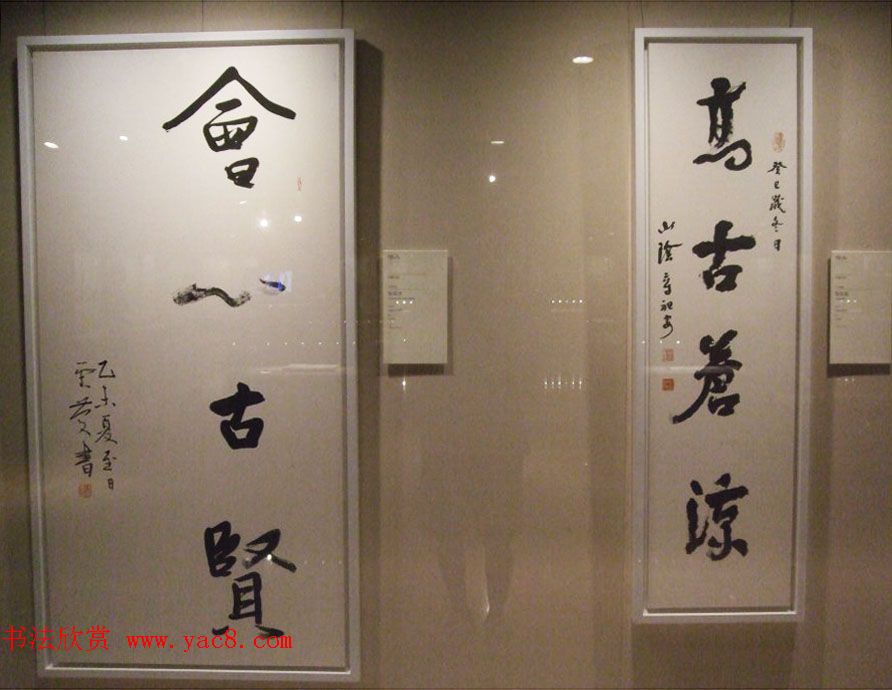 會心古賢
乙未夏至日
書
癸巳歲冬日
高古蒼涼
山陰章祖安
书法欣赏 www.yac8.com